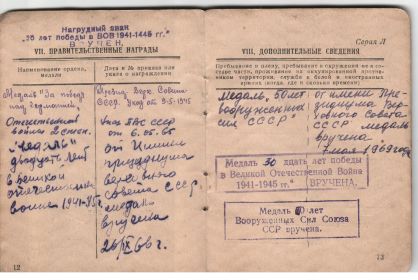 Нагрудный знак
"25 лет победы в ВОВ 1941-1945 гг."
ВРУЧЕН.
VII. ПРАВИТЕЛЬСТВЕННЫЕ НАГРАДЫ
Наименование ордена, медали
Дата и № приказа или указа о награждении
Медаль "За победу
над Германией"
Презид. Верх. Совета
СССР. Указ от 9.5.1945
Отечественная
война 2 степ.
Медаль
двадцать лет
в великой
отечественной
войне 1941-45г.
Указ СССР
от 6.05.65
от имени
президиума
верховного
совета СССР
медаль
вручена
12
Серия Л
VIII. ДОПОЛНИТЕЛЬНЫЕ СВЕДЕНИЯ
Пребывание в плену, пребывание в окружении и в составе части, проживание на оккупированной противником территории, служба в белой и иностранных армиях (когда, где и сколько времени)
Медаль, 50 лет
вооруженных
сил СССР"
от имени Пре-
зидиума Вер-
ховного Совета
СССР медаль
вручена
7 мая 1969 года
Медаль 30 дцать лет победы
в Великой Отечественной Война
1941-1945 гг." ВРУЧЕНА.
Медаль 60 лет
Вооруженных Сил Союза
ССР вручена.
13